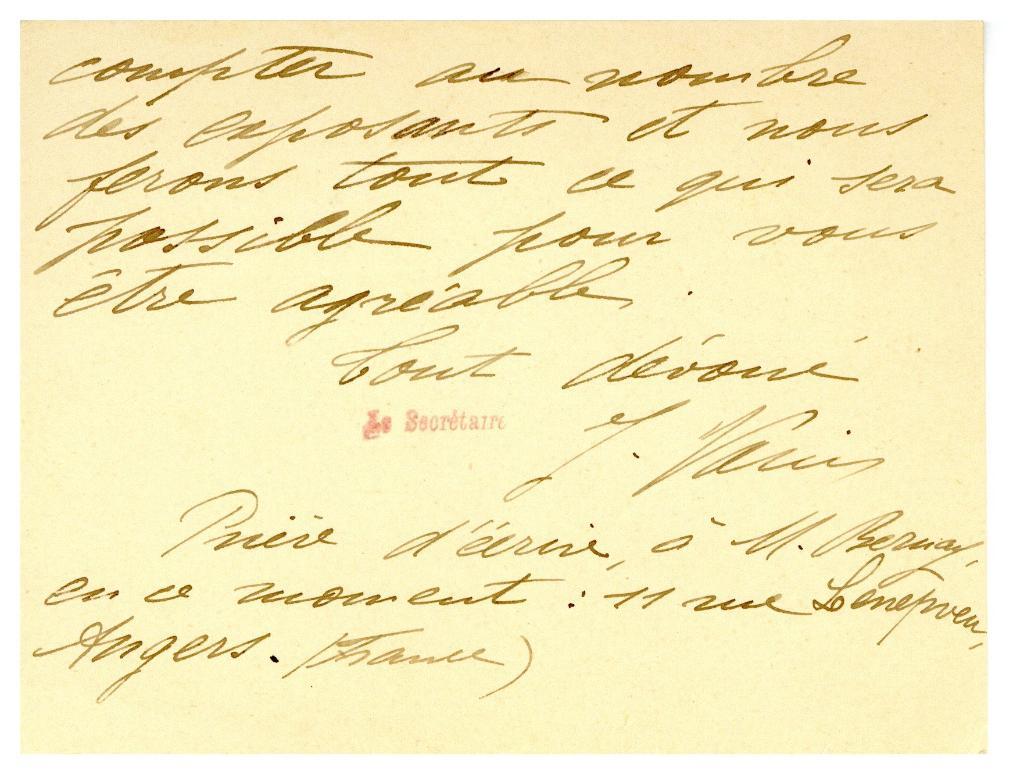 compter au nombre
des exposants et nous
ferons tout ce qui sera
possible pour vous
être agréable.
Tout dévoué
Le Secrétaire
J.
Prière d'écrire, à M. Bernay,
en ce moment : 11 rue Lenepveu,
Angers. (France)